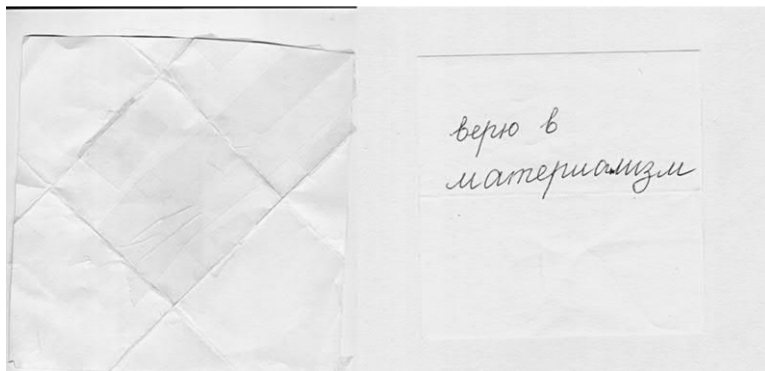 верю в
материализм